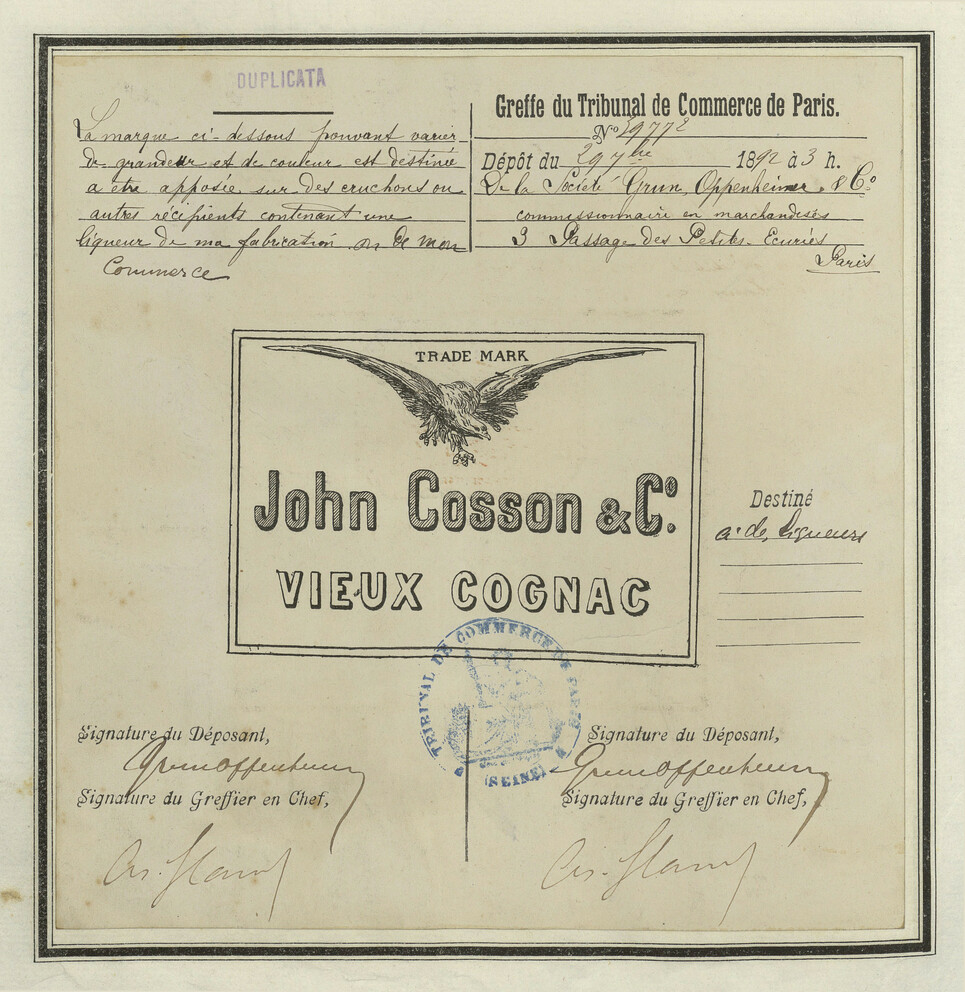 DUPLICATA
La marque ci-dessous pouvant varier
de grandeur et de couleur est destinée
a être apposée sur des cruchons ou
autres récipients contenant une
liqueur de ma fabrication ou de mon
Commerce
Greffe du Tribunal de Commerce de Paris.
Nº 39772
Dépôt du 29 7bre 1892 à 3 h.
De la Société Grun, Oppenheimer & Cº
commissionnaire en marchandises
3 Passage des Petites-Ecuries
Paris
TRADE MARK
John Cosson & Cº.
VIEUX COGNAC
Destiné
a: de, Liqueurs
TRIBUNAL DE COMMERCE DE PARIS
(SEINE)
Signature du Déposant,
Grun Oppenheimer
Signature du Greffier en Chef,
Signature du Déposant,
Grun Oppenheimer
Signature du Greffier en Chef,